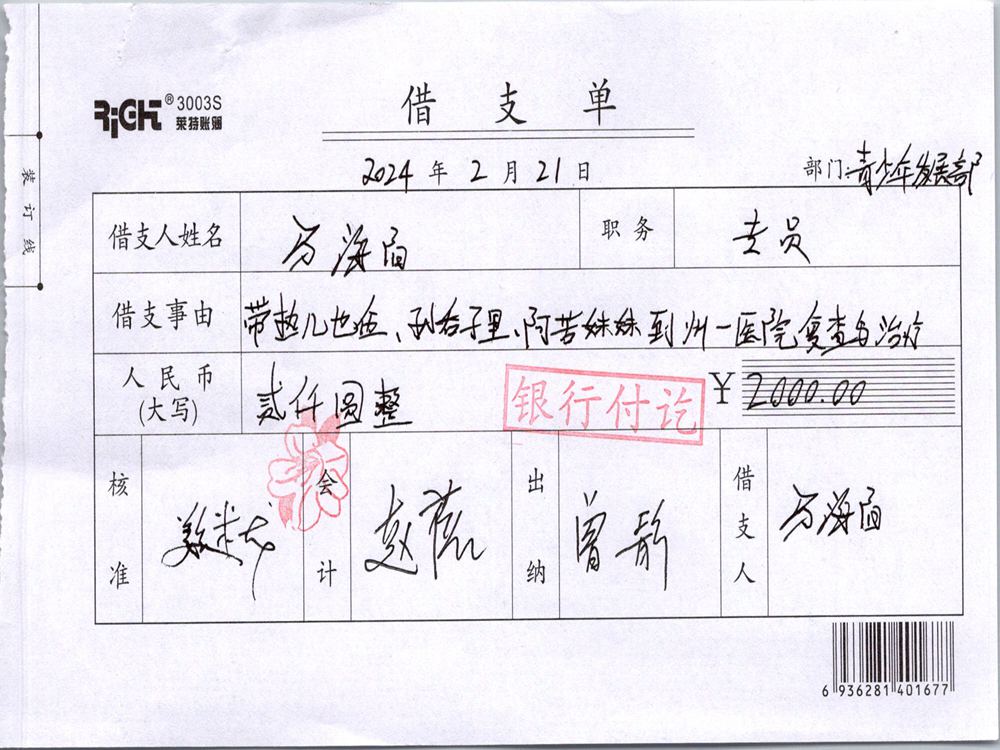 RiGHT® 3003S
莱特账簿
借 支 单
2024 年 2 月 21 日
部门 青少年发展部
装订线
借支人姓名 万海
职务 专员
借支事由 带热几也、孙右子里、阿苦妹妹到州一医院复查与治疗
人民币(大写) 贰仟圆整
¥ 2000.00
银行付讫
核准
会计 赵
出纳 曾
借支人 万海
6 936281 401677